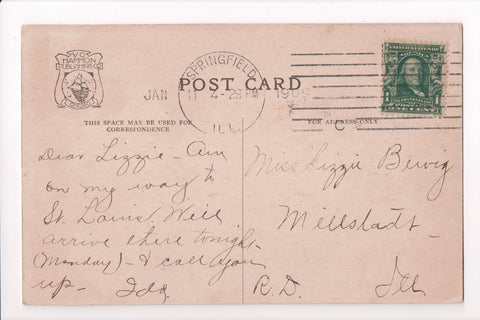 V.O.
HAMMON
PUBLISHING CO.
CHICAGO
SPRINGFIELD
ILL.
JAN 11 4-29 PM 1909
C
POST CARD
THIS SPACE MAY BE USED FOR
CORRESPONDENCE
FOR ADDRESS ONLY
Dear Lizzie - Am
on my way to
St. Louis. Will
arrive there tonight
(Monday) - & call you
up - Ida
Miss Lizzie
Millstadt -
R.D. Ill